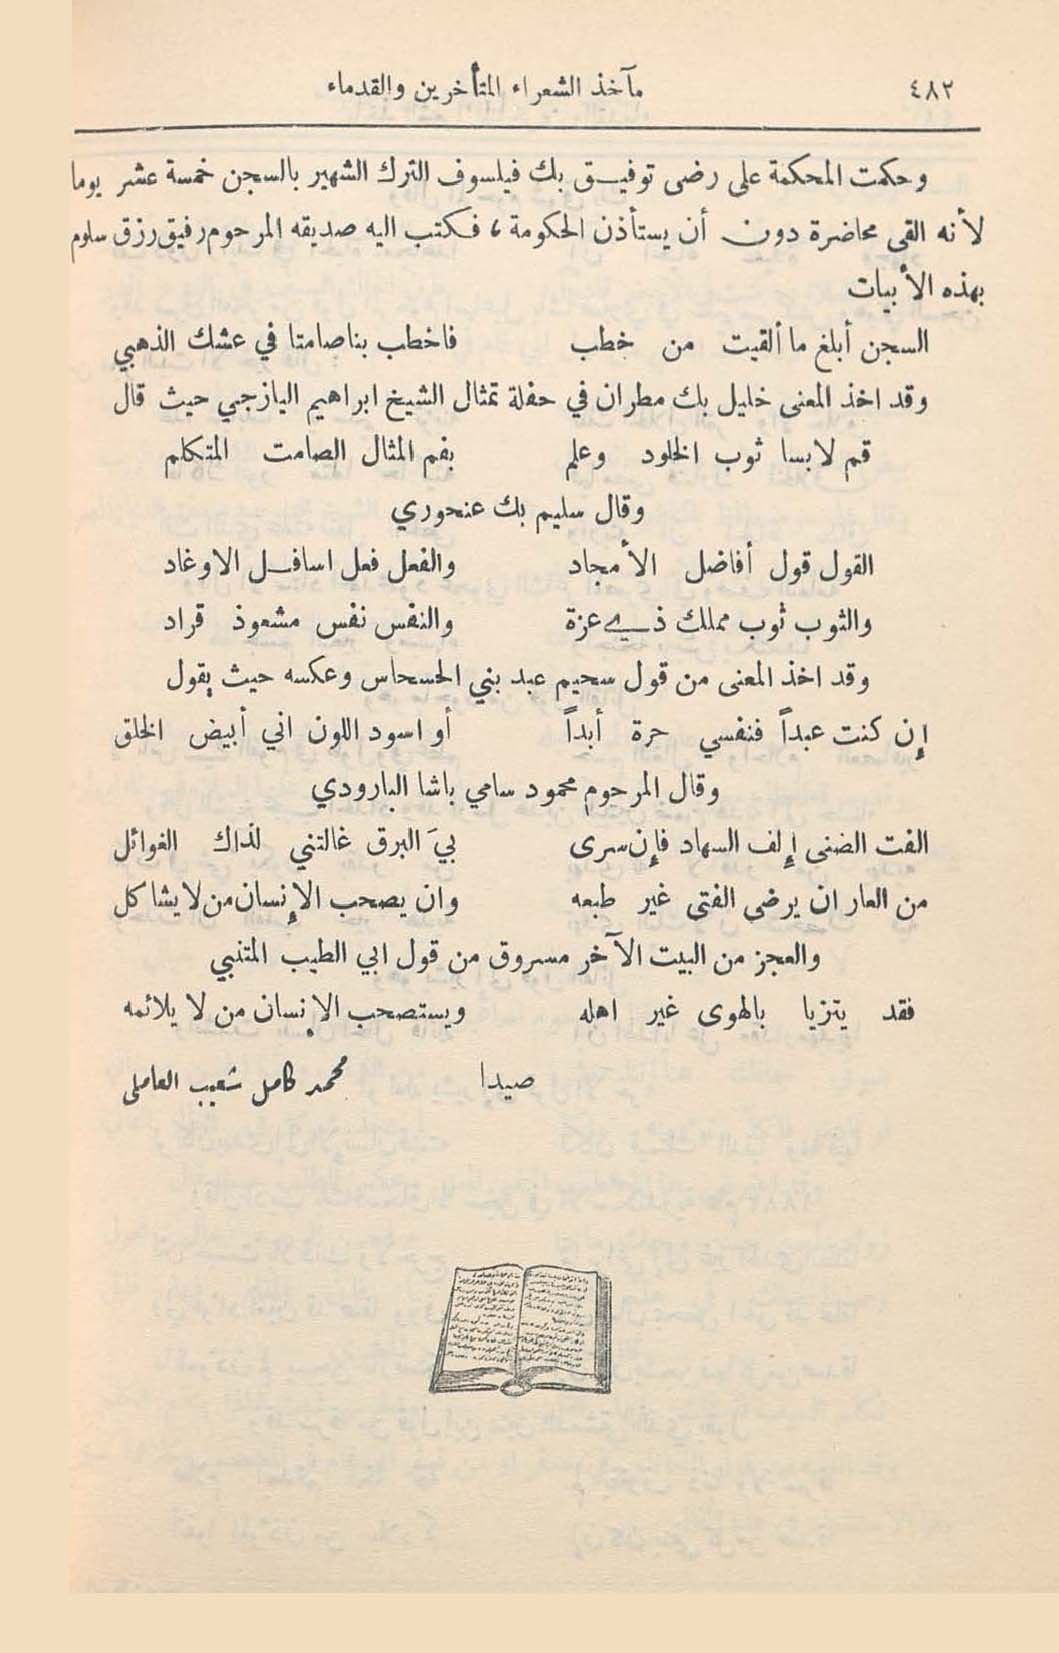 ٤٨٢ مآخذ الشعراء المتأخرين والقدماء
وحكمت المحكمة على رضى توفيق بك فيلسوف الترك الشهير بالسجن خمسة عشر يوما
لأنه القى محاضرة دون أن يستأذن الحكومة ، فكتب اليه صديقه المرحوم رفيق رزق سلوم
بهذه الأبيات
السجن أبلغ ما ألقيت من خطب فاخطب بنا صامتا في عشك الذهبي
وقد اخذ المعنى خليل بك مطران في حفلة تمثال الشيخ ابراهيم اليازجي حيث قال
قم لابسا ثوب الخلود وعلم بفم المثال الصامت المتكلم
وقال سليم بك عنحوري
القول قول أفاضل الأمجاد والفعل فعل اسافل الاوغاد
والثوب ثوب مملك ذي عزة والنفس نفس مشعوذ قراد
وقد اخذ المعنى من قول سحيم عبد بني الحسحاس وعكسه حيث يقول
إن كنت عبداً فنفسي حرة أبداً أو اسود اللون اني أبيض الخلق
وقال المرحوم محمود سامي باشا البارودي
الفت الضنى إلف السهاد فإن سرى بيَ البرق غالتني لذاك الغوائل
من العار ان يرضى الفتى غير طبعه وان يصحب الإنسان من لا يشاكل
والعجز من البيت الآخر مسروق من قول ابي الطيب المتنبي
فقد يتزيا بالهوى غير اهله ويستصحب الإنسان من لا يلائمه
صيدا محمد كامل شعيب العاملي